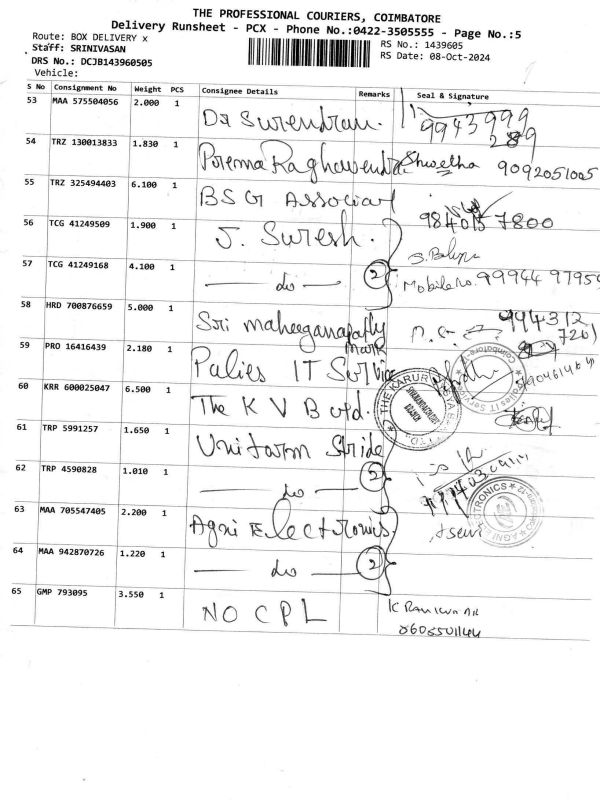 THE PROFESSIONAL COURIERS, COIMBATORE
Delivery Runsheet - PCX - Phone No.:0422-3505555 - Page No.:5
Route: BOX DELIVERY x
RS No.: 1439605
Staff: SRINIVASAN
RS Date: 08-Oct-2024
DRS No.: DCJB143960505
Vehicle:
S No Consignment No Weight PCS Consignee Details Remarks Seal & Signature
53 MAA 575504056 2.000 1 Dr Surendran. 9943999
289
54 TRZ 130013833 1.830 1 Prema Raghavendra Shwetha 9092051005
55 TRZ 325494403 6.100 1 BSG Associat
56 TCG 41249509 1.900 1 J. Suresh. 7800
57 TCG 41249168 4.100 1 — do — 2 Mobile No. 99944 97959
58 HRD 700876659 5.000 1 Sri mahaganapathy
994312
7201
59 PRO 16416439 2.180 1 Palies IT Service
60 KRR 600025047 6.500 1 The K V B Ltd. THE KARUR BRANCH
61 TRP 5991257 1.650 1 Uniform Stride
62 TRP 4590828 1.010 1 — do — 2
63 MAA 705547405 2.200 1 Agni Electronics.
AGNI ELECTRONICS
64 MAA 942870726 1.220 1 — do — 2
65 GMP 793095 3.550 1 NO CPL